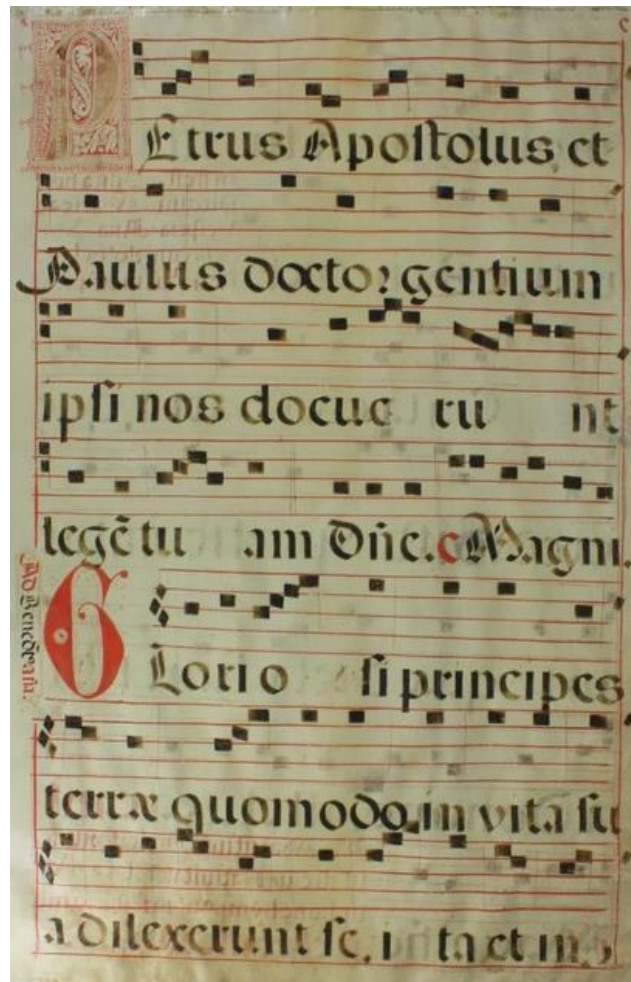 PEtrus Apostolus et
Paulus doctor gentium
ipsi nos docue ru nt
legē tu am Dñe. e Magni
Ad Benedictus añ.
GLorio si principes
terræ quomodo in vita su
a dilexerunt se, i ta et in